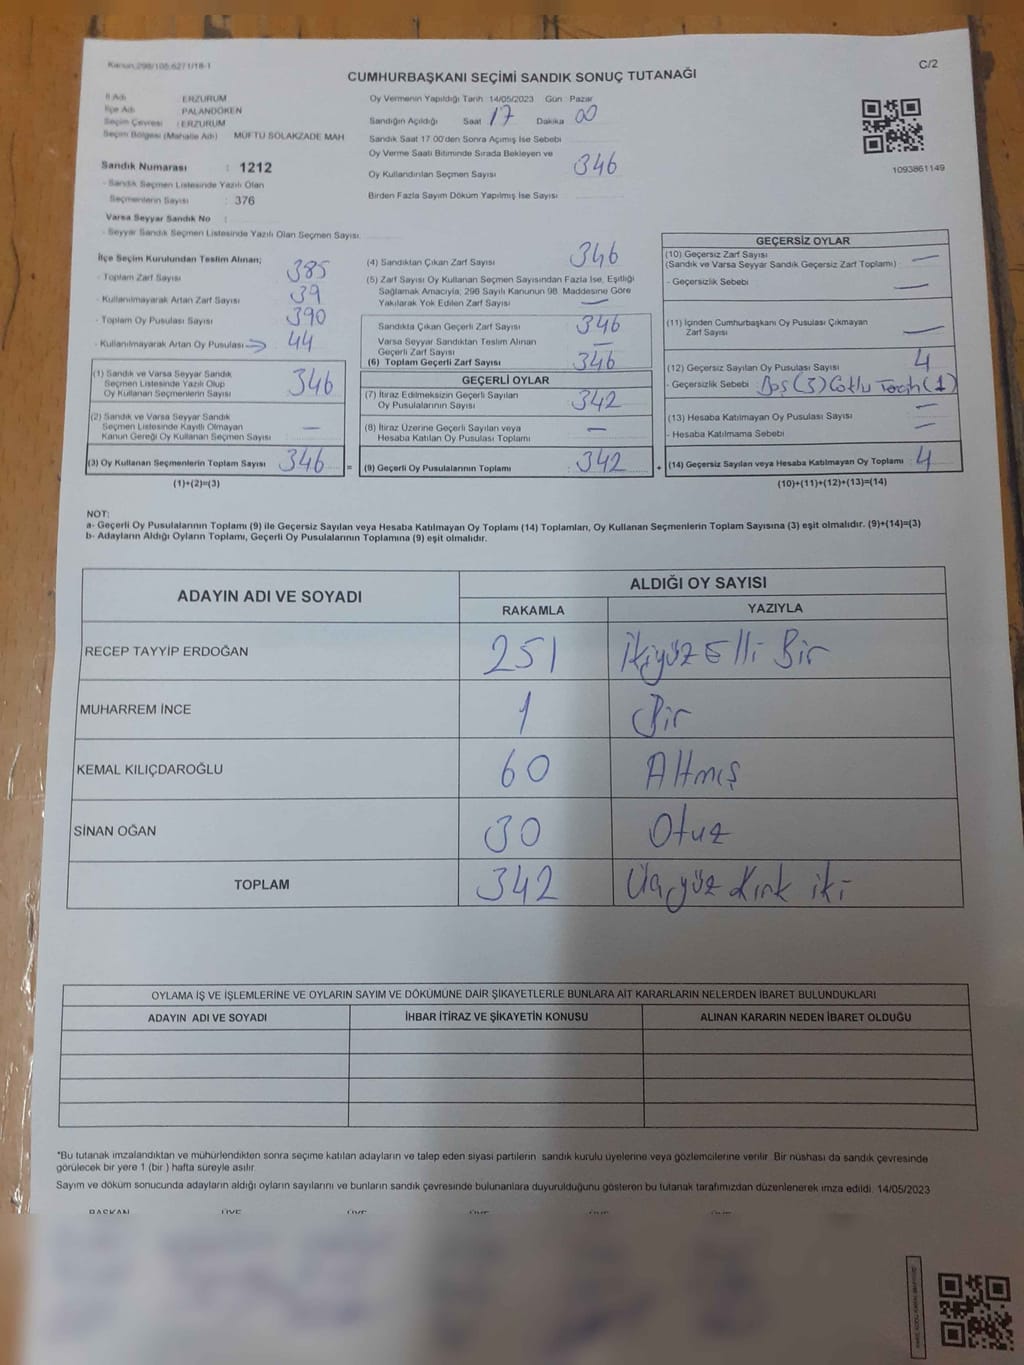 Kanun:298/105:6271/18-1
C/2
CUMHURBAŞKANI SEÇİMİ SANDIK SONUÇ TUTANAĞI
İl Adı : ERZURUM
İlçe Adı : PALANDÖKEN
Seçim Çevresi : ERZURUM
Seçim Bölgesi (Mahalle Adı) MÜFTÜ SOLAKZADE MAH
Sandık Numarası : 1212
- Sandık Seçmen Listesinde Yazılı Olan
Seçmenlerin Sayısı : 376
Varsa Seyyar Sandık No :
- Seyyar Sandık Seçmen Listesinde Yazılı Olan Seçmen Sayısı:
Oy Vermenin Yapıldığı Tarih 14/05/2023 Gün Pazar
Sandığın Açıldığı Saat 17 Dakika 00
Sandık Saat 17.00'den Sonra Açımış İse Sebebi
Oy Verme Saati Bitiminde Sırada Bekleyen ve
Oy Kullandırılan Seçmen Sayısı 346
Birden Fazla Sayım Döküm Yapılmış İse Sayısı
1093861149
İlçe Seçim Kurulundan Teslim Alınan;
- Toplam Zarf Sayısı 385
- Kullanılmayarak Artan Zarf Sayısı 39
- Toplam Oy Pusulası Sayısı 390
- Kullanılmayarak Artan Oy Pusulası 44
(1) Sandık ve Varsa Seyyar Sandık
Seçmen Listesinde Yazılı Olup
Oy Kullanan Seçmenlerin Sayısı 346
(2) Sandık ve Varsa Seyyar Sandık
Seçmen Listesinde Kayıtlı Olmayan
Kanun Gereği Oy Kullanan Seçmen Sayısı —
(3) Oy Kullanan Seçmenlerin Toplam Sayısı 346 =
(1)+(2)=(3)
(4) Sandıktan Çıkan Zarf Sayısı 346
(5) Zarf Sayısı Oy Kullanan Seçmen Sayısından Fazla İse, Eşitliği
Sağlamak Amacıyla, 298 Sayılı Kanunun 98. Maddesine Göre
Yakılarak Yok Edilen Zarf Sayısı —
Sandıkta Çıkan Geçerli Zarf Sayısı 346
Varsa Seyyar Sandıktan Teslim Alınan
Geçerli Zarf Sayısı —
(6) Toplam Geçerli Zarf Sayısı 346
GEÇERLİ OYLAR
(7) İtiraz Edilmeksizin Geçerli Sayılan
Oy Pusulalarının Sayısı 342
(8) İtiraz Üzerine Geçerli Sayılan veya
Hesaba Katılan Oy Pusulası Toplamı —
(9) Geçerli Oy Pusulalarının Toplamı : 342 +
GEÇERSİZ OYLAR
(10) Geçersiz Zarf Sayısı —
(Sandık ve Varsa Seyyar Sandık Geçersiz Zarf Toplamı)
- Geçersizlik Sebebi —
(11) İçinden Cumhurbaşkanı Oy Pusulası Çıkmayan
Zarf Sayısı —
(12) Geçersiz Sayılan Oy Pusulası Sayısı 4
- Geçersizlik Sebebi Boş (3) Çoklu Tercih (1)
(13) Hesaba Katılmayan Oy Pusulası Sayısı —
- Hesaba Katılmama Sebebi —
(14) Geçersiz Sayılan veya Hesaba Katılmayan Oy Toplamı : 4
(10)+(11)+(12)+(13)=(14)
NOT:
a- Geçerli Oy Pusulalarının Toplamı (9) ile Geçersiz Sayılan veya Hesaba Katılmayan Oy Toplamı (14) Toplamları, Oy Kullanan Seçmenlerin Toplam Sayısına (3) eşit olmalıdır. (9)+(14)=(3)
b- Adayların Aldığı Oyların Toplamı, Geçerli Oy Pusulalarının Toplamına (9) eşit olmalıdır.
ADAYIN ADI VE SOYADI ALDIĞI OY SAYISI
RAKAMLA YAZIYLA
RECEP TAYYİP ERDOĞAN 251 İkiyüz Elli Bir
MUHARREM İNCE 1 Bir
KEMAL KILIÇDAROĞLU 60 Altmış
SİNAN OĞAN 30 Otuz
TOPLAM 342 Üçyüz Kırk iki
OYLAMA İŞ VE İŞLEMLERİNE VE OYLARIN SAYIM VE DÖKÜMÜNE DAİR ŞİKAYETLERLE BUNLARA AİT KARARLARIN NELERDEN İBARET BULUNDUKLARI
ADAYIN ADI VE SOYADI İHBAR İTİRAZ VE ŞİKAYETİN KONUSU ALINAN KARARIN NEDEN İBARET OLDUĞU
*Bu tutanak imzalandıktan ve mühürlendikten sonra seçime katılan adayların ve talep eden siyasi partilerin sandık kurulu üyelerine veya gözlemcilerine verilir. Bir nüshası da sandık çevresinde
görülecek bir yere 1 (bir ) hafta süreyle asılır.
Sayım ve döküm sonucunda adayların aldığı oyların sayılarını ve bunların sandık çevresinde bulunanlara duyurulduğunu gösteren bu tutanak tarafımızdan düzenlenerek imza edildi. 14/05/2023
BAŞKAN ÜYE ÜYE ÜYE ÜYE ÜYE